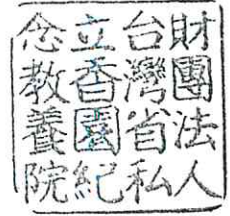 財團法人
台灣省私
立香園紀
念教養院